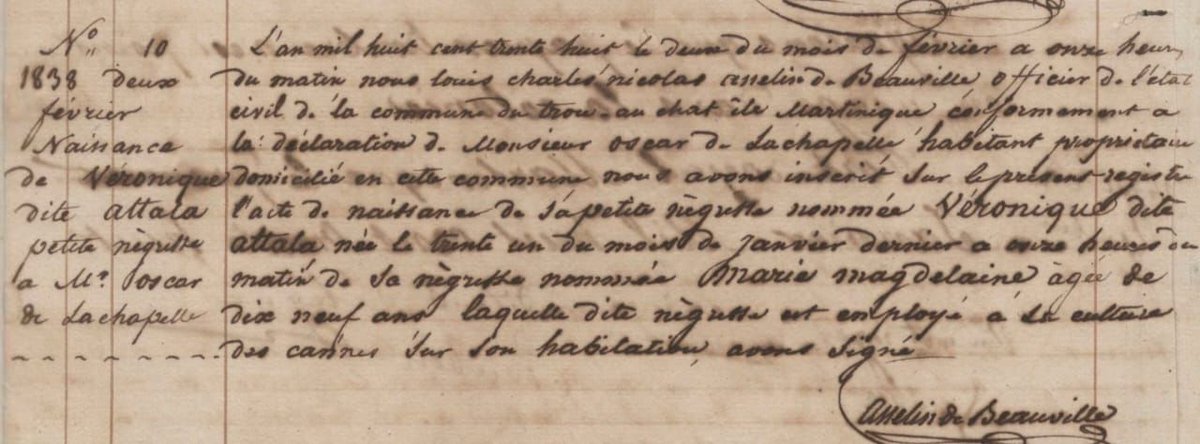 N° 10
1838 deux
février
Naissance
de Véronique
dite attala
petite nègresse
a Mr. oscar
de Lachapelle
L'an mil huit cent trente huit le deux du mois de février a onze heures
du matin nous louis charles nicolas asselin de Beauville officier de l'état
civil de la commune du trou-au chat île Martinique conformement à
la déclaration de Monsieur oscar de Lachapelle habitant propriétaire
domicilié en cette commune nous avons inscrit sur le présent registre
l'acte de naissance de sa petite nègresse nommée Véronique dite
attala née le trente un du mois de janvier dernier a onze heures du
matin de sa nègresse nommée Marie magdelaine àgée de
dix neuf ans laquelle dite nègresse est employé à la culture
des cannes sur son habitation, avons signé
asselin de Beauville